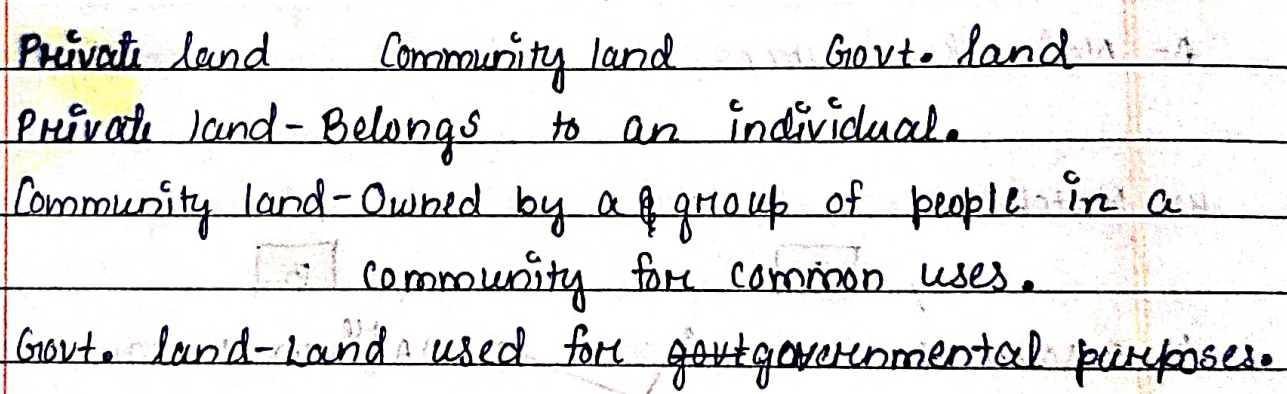 Private land Community land Govt. land
Private land - Belongs to an individual.
Community land - Owned by a group of people in a
community for common uses.
Govt. land - Land used for govt governmental purposes.